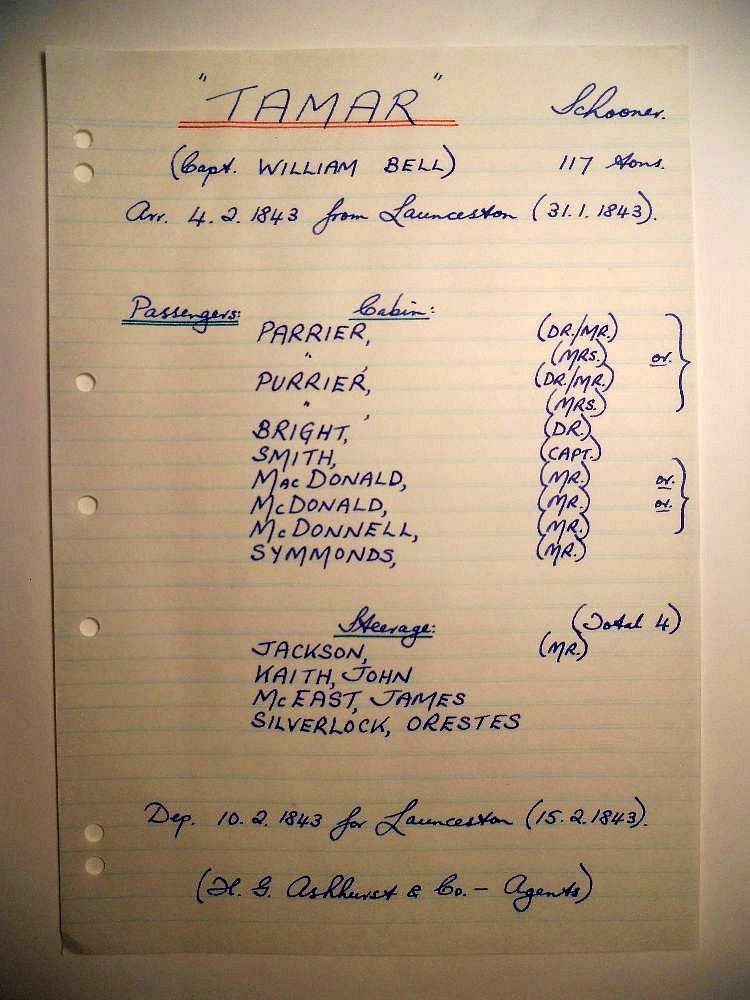 "TAMAR" Schooner.
(Capt. WILLIAM BELL) 117 tons.
Arr. 4.2.1843 from Launceston (31.1.1843).
Passengers: Cabin:
PARRIER, (DR./MR.)
" , (MRS.) or.
PURRIER, (DR./MR.)
" , (MRS.)
BRIGHT, (DR.)
SMITH, (CAPT.)
MacDONALD, (MR.) or.
McDONALD, (MR.) or.
McDONNELL, (MR.)
SYMMONDS, (MR.)
Steerage: (Total 4)
JACKSON, (MR.)
KAITH, JOHN
McEAST, JAMES
SILVERLOCK, ORESTES
Dep. 10.2.1843 for Launceston (15.2.1843).
(H. G. Ashhurst & Co. - Agents)